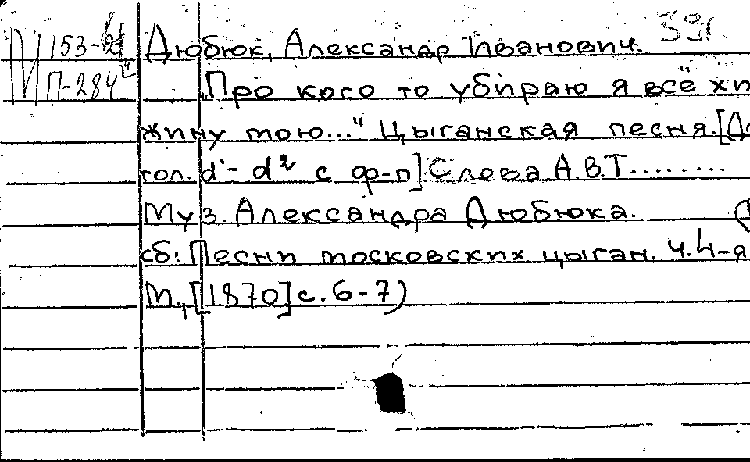 М 153-
П-284
391
Дюбюк, Александр Иванович.
„Про кого то убираю я всё хи
жину мою..." Цыганская песня. [Дл
гол. d¹- d² с ф-п]. Слова А.В.Т........
Муз. Александра Дюбюка. (
сб: Песни московских цыган. ч.4-я
М., [1870] с. 6-7)